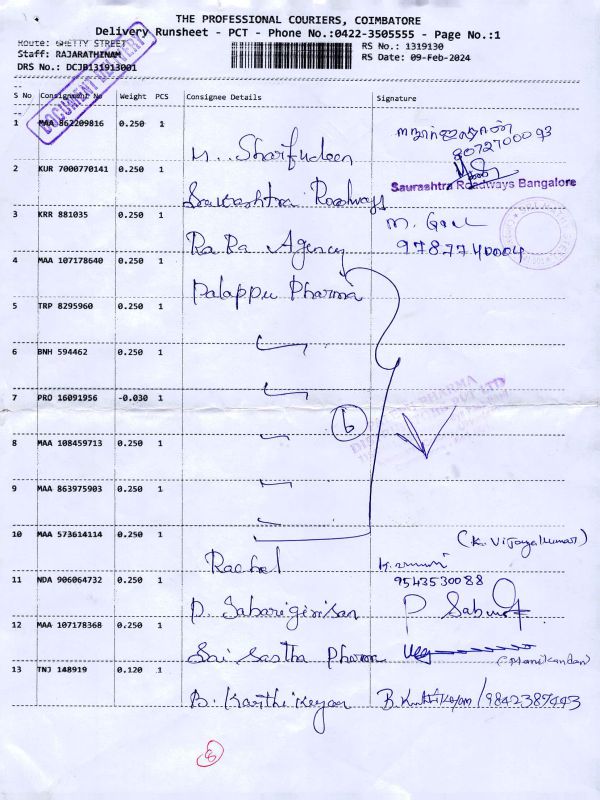 THE PROFESSIONAL COURIERS, COIMBATORE
Delivery Runsheet - PCT - Phone No.:0422-3505555 - Page No.:1
Route: GHETTY STREET
RS No.: 1319130
Staff: RAJARATHINAM
RS Date: 09-Feb-2024
DRS No.: DCJB131913001
DOCUMENT DELIVERY
S No Consignment No Weight PCS Consignee Details Signature
1 MAA 862209816 0.250 1
M. Sharfudeen
8072700093
2 KUR 7000770141 0.250 1
Saurashtra Roadways
Saurashtra Roadways Bangalore
3 KRR 881035 0.250 1
Ra Ra Agency
9787740004
4 MAA 107178640 0.250 1
Palappu Pharma
5 TRP 8295960 0.250 1
6 BNH 594462 0.250 1
7 PRO 16091956 -0.030 1
PHARMA
6
8 MAA 108459713 0.250 1
9 MAA 863975903 0.250 1
10 MAA 573614114 0.250 1
Rachel
(K. Vijayalkumar)
9543530088
11 NDA 906064732 0.250 1
P. Sabarigirisan
P Sabu
12 MAA 107178368 0.250 1
Sai Sastha Pharma
(Manikandan)
13 TNJ 148919 0.120 1
B. Karthikeyan
B. Karthikeyan / 9842387443
8